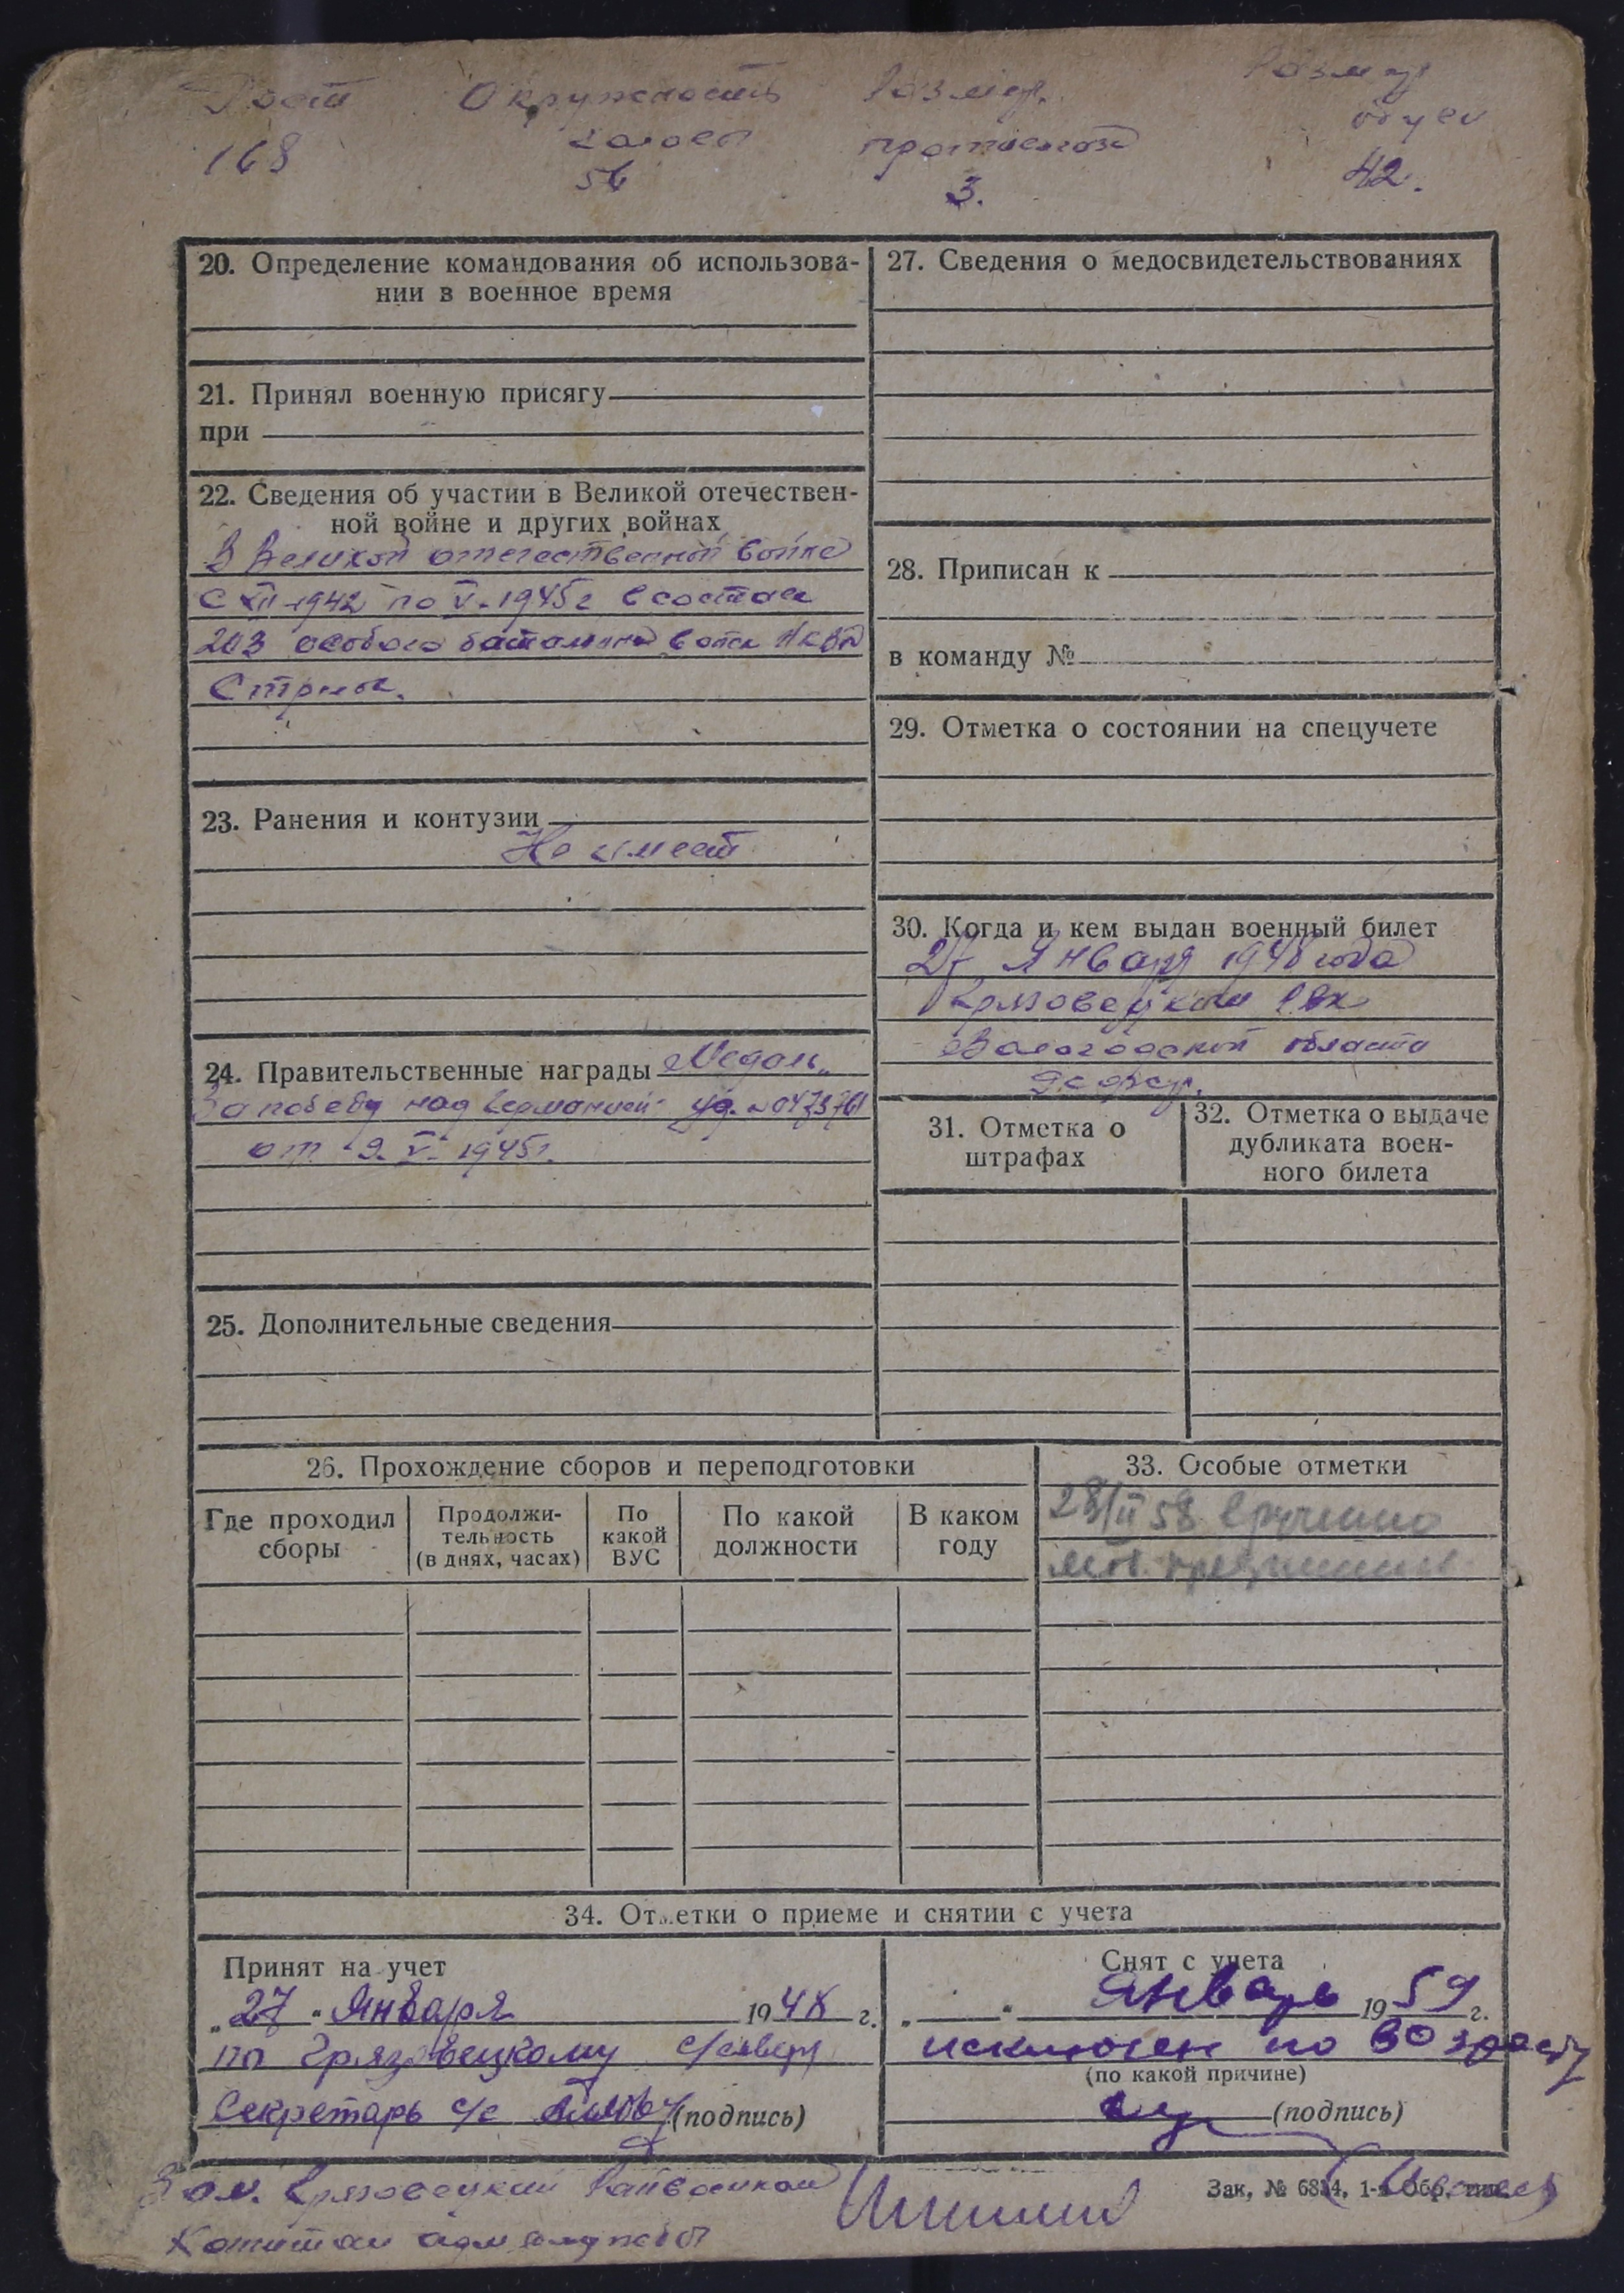 Рост Окружность Размер Размер
головы противогаза обуви
168 56 3. 42.
20. Определение командования об использова-
нии в военное время
21. Принял военную присягу
при
22. Сведения об участии в Великой отечествен-
ной войне и других войнах
В Великой отечественной войне
с XII-1942 по V-1945г в составе
203 особого батальона войск НКВД
Стрелок.
23. Ранения и контузии
Не имеет
24. Правительственные награды Медаль „
За победу над Германией" уд. №0473761
от 9. V- 1945г.
25. Дополнительные сведения
27. Сведения о медосвидетельствованиях
28. Приписан к
в команду №
29. Отметка о состоянии на спецучете
30. Когда и кем выдан военный билет
27 Января 1948 года
Грязовецким РВК
Вологодской области
31. Отметка о
штрафах
32. Отметка о выдаче
дубликата воен-
ного билета
26. Прохождение сборов и переподготовки
Где проходил
сборы
Продолжи-
тельность
(в днях, часах)
По
какой
ВУС
По какой
должности
В каком
году
33. Особые отметки
28/II 58 вручено
моб. предписание
34. Отметки о приеме и снятии с учета
Принят на учет
„27" Января 1948 г.
по Грязовецкому с/совету
Секретарь с/с (подпись)
Снят с учета
„ " Январь 1959 г.
исключен по возрасту
(по какой причине)
(подпись)
Зак. № 6834, 1-я Обр. тип.
Зам. Грязовецкий Райвоенком
Капитан адм службы